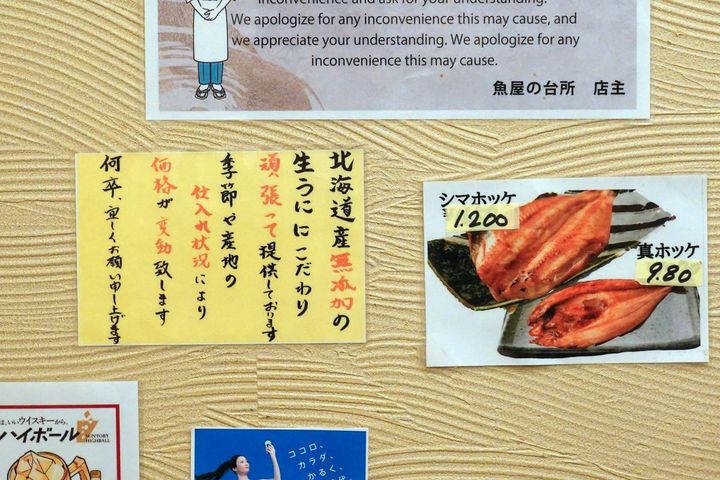 inconvenience and ask for your understanding.
We apologize for any inconvenience this may cause, and
we appreciate your understanding. We apologize for any
inconvenience this may cause.
魚屋の台所 店主
北海道産無添加の
生うににこだわり
頑張って提供しております
季節や産地の
仕入れ状況により
価格が変動致します
何卒、宜しくお願い申し上げます
シマホッケ
1.200
真ホッケ
9.80
は、いいウイスキーから。
ハイボール
SUNTORY
HIGHBALL
ココロ、
カラダ、
かるく、